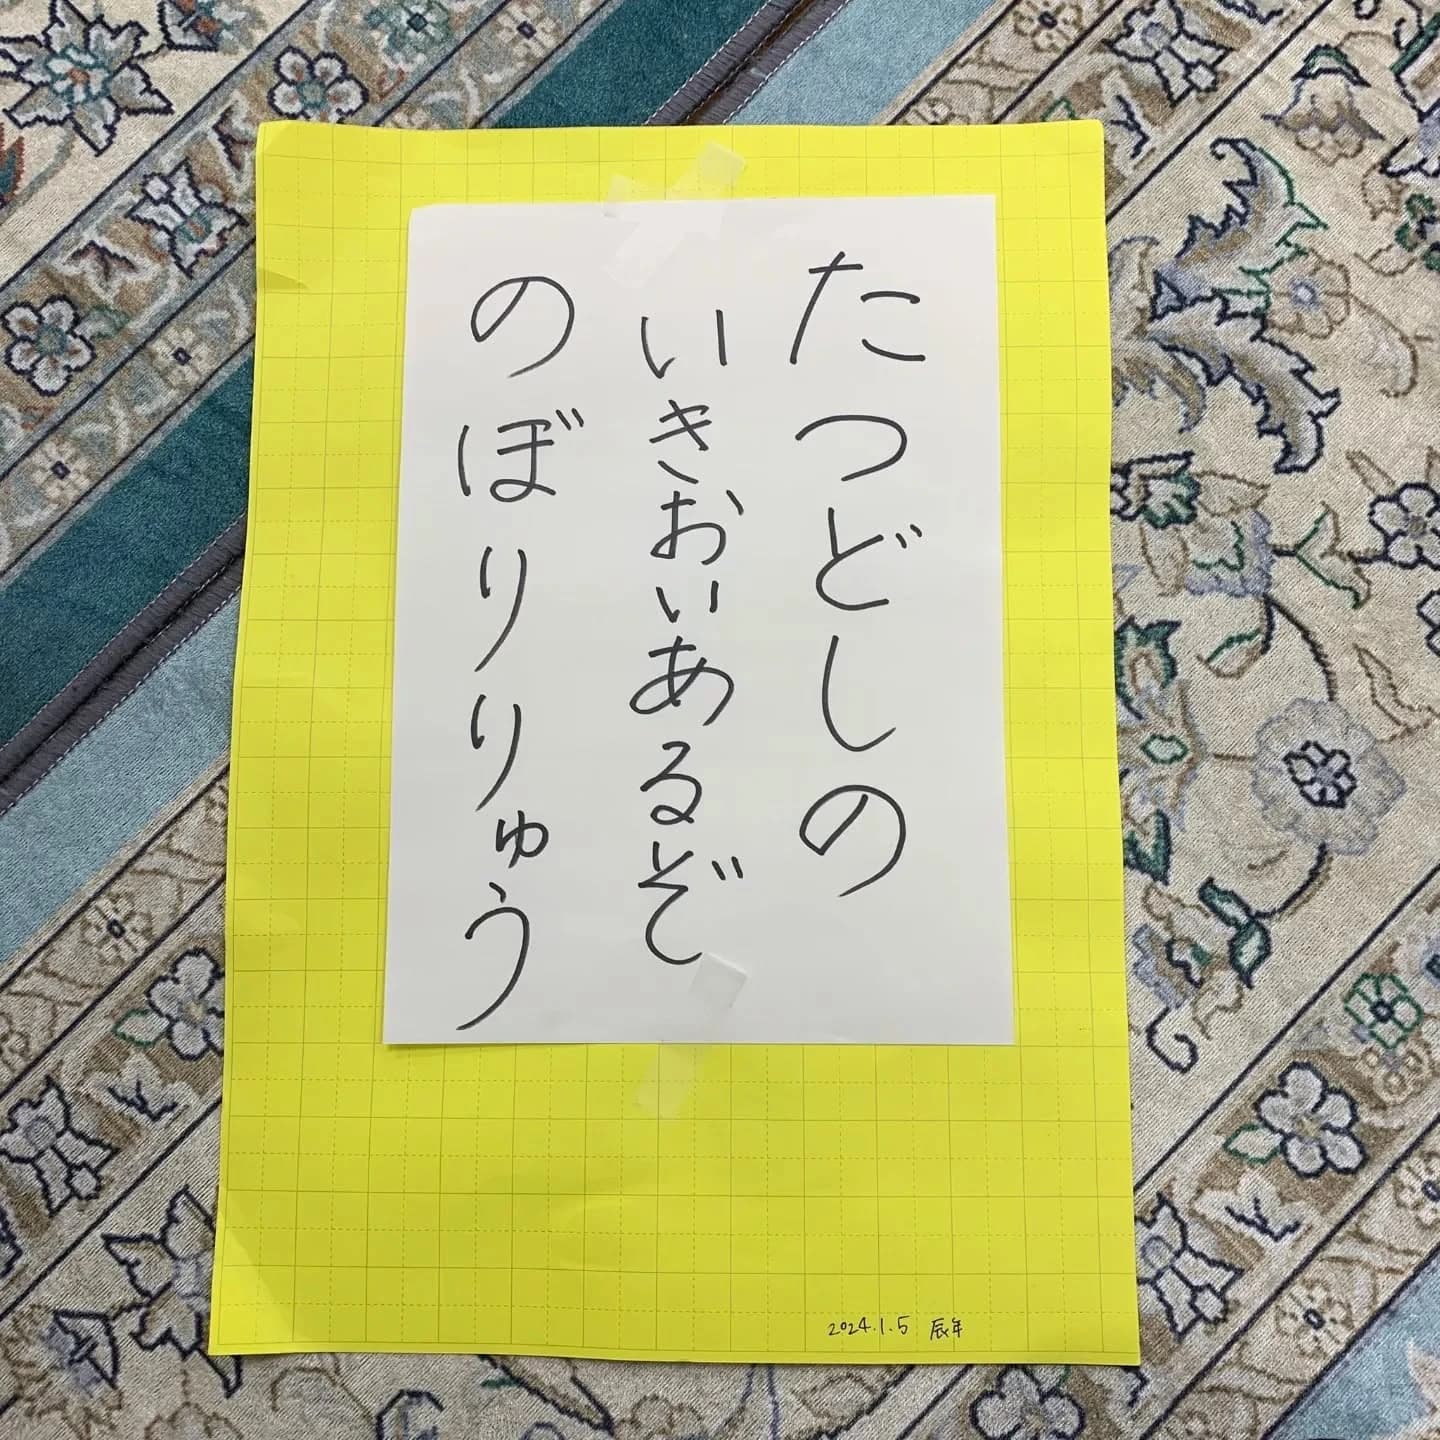 たつどしの
いきおいあるぞ
のぼりりゅう
2024.1.5 辰年